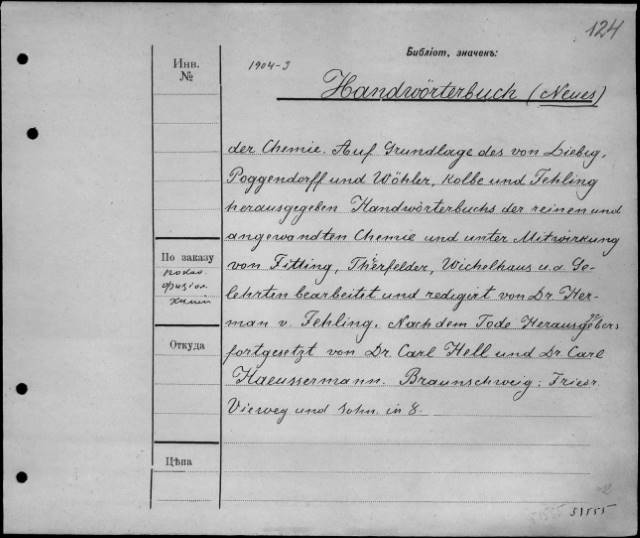 124
Библіот. значекъ:
Инв. №
1904-3
Handwörterbuch (Neues)
der Chemie. Auf Grundlage des von Liebig,
Poggendorff und Wöhler, Kolbe und Fehling
herausgegeben Handwörterbuchs der reinen und
angewandten Chemie und unter Mitwirkung
von Fitting, Thierfelder, Wichelhaus u.a. Ge-
lehrten bearbeitet und redigirt von Dr. Her-
man v. Fehling. Nach dem Tode Herausgebers
fortgesetzt von Dr. Carl Hell und Dr. Carl
Haeussermann. Braunschweig. Friedr.
Vieweg und Sohn. in 8.
По заказу
физіол.
химіи
Откуда
Цѣна
51555